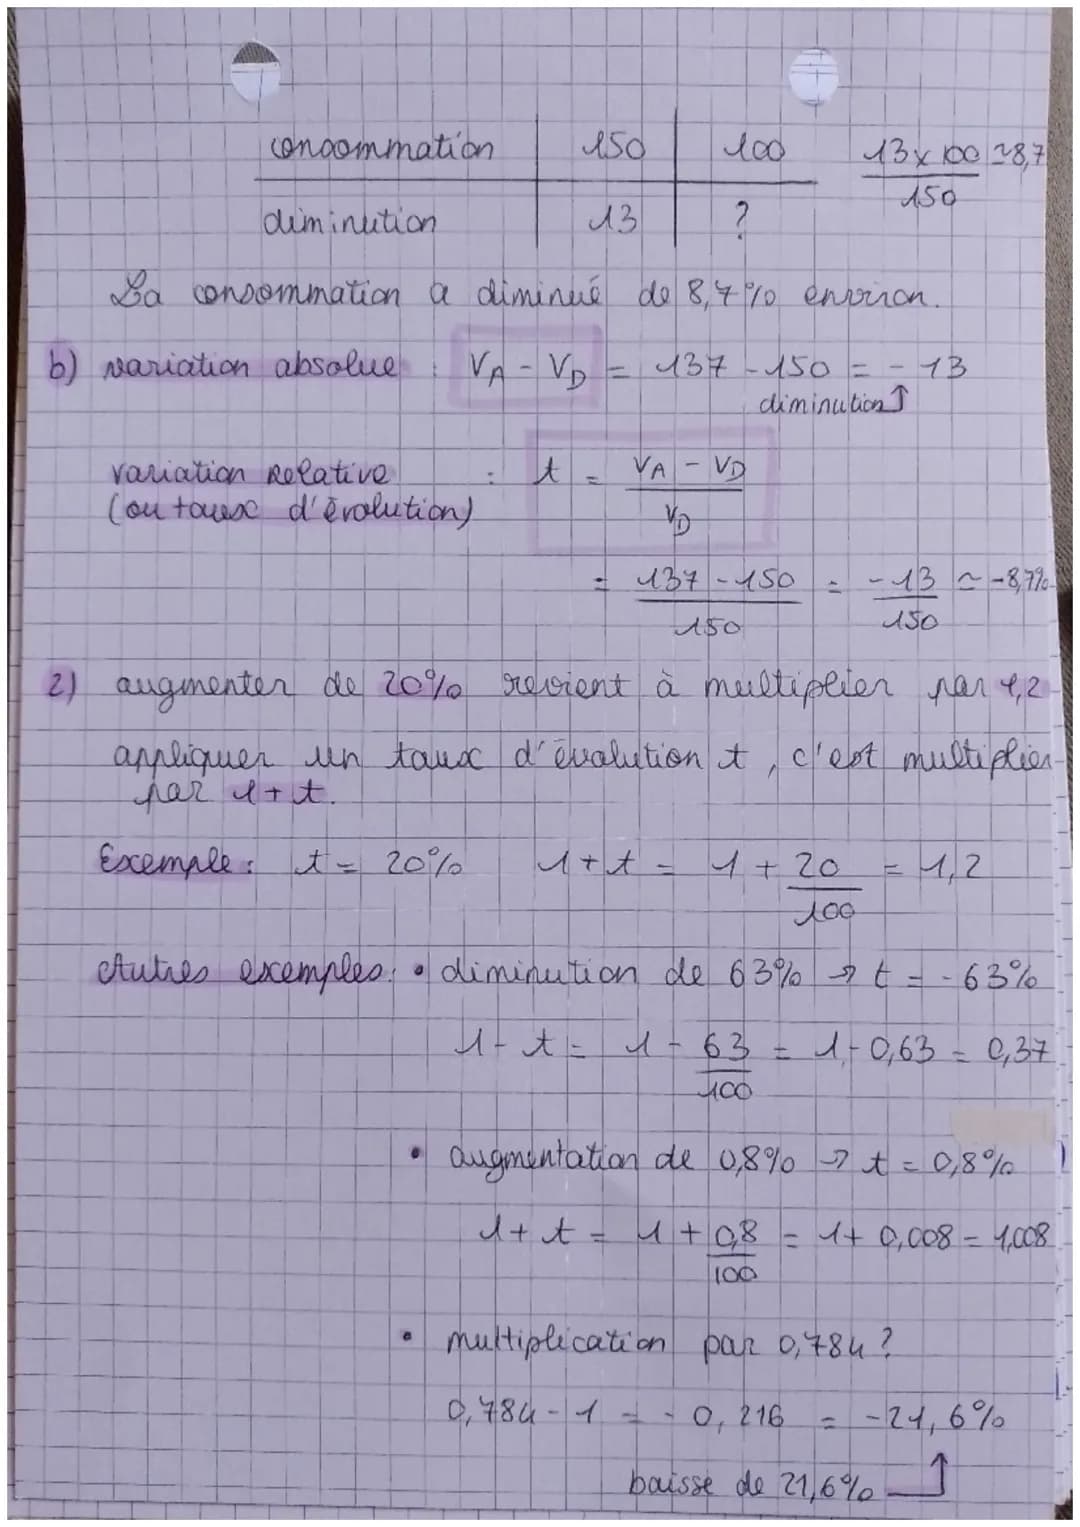 consommation | 150 | 100 13 x 100 ≃ 8,7
150
diminution | 13 | ?
La consommation a diminué de 8,7% environ.
b) variation absolue : VA - VD = 137 - 150 = - 13
diminution ↑
variation relative : t = VA - VD
(ou taux d'évolution) VD
= 137 - 150 = - 13 ≃ -8,7%
150 150
2) augmenter de 20% revient à multiplier par 1,2
appliquer un taux d'évolution t, c'est multiplier
par 1+t.
Exemple : t = 20% 1+t = 1 + 20 = 1,2
100
Autres exemples : • diminution de 63% → t = - 63%
1 - t = 1 - 63 = 1 - 0,63 = 0,37
100
• augmentation de 0,8% → t = 0,8%
1+t = 1 + 0,8 = 1 + 0,008 = 1,008
100
• multiplication par 0,784 ?
0,784 - 1 = - 0,216 = -21,6%
baisse de 21,6% ↑